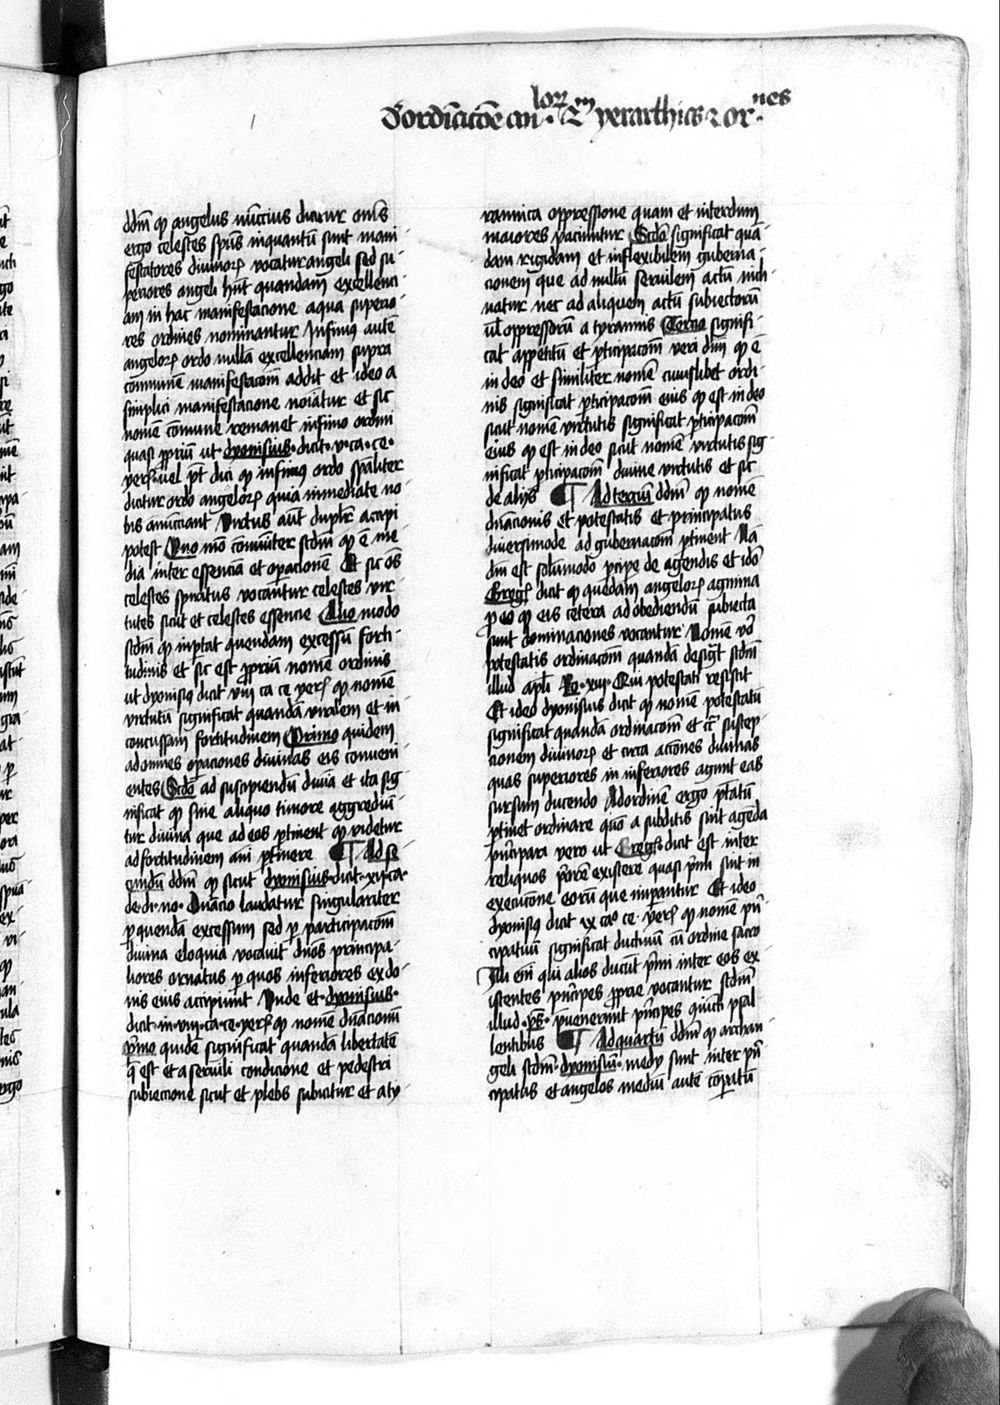 de ordinacione angelorum secundum yerarchias et ordines
ddm̄ qp̱ angelus nūccius dicitur om̄s
ergo celestes spūs inquantū sunt mani
festatores divinorꝝ vocātur angeli sed su
periores angeli hn̄t quandam excellenci
am in hac manifestacione a qua superio
res ordines nominantur Infimus autē
angelorꝝ ordo nullā excellenciam supra
communē manifestacōm addit et ideo a
simplici manifestacione noīatur et sic
nomē cōmune remanet infimo ordini
quasi ꝓpriū ut dyonisius dicit v ca ce
yerͨ vel pt̄ dici qp̱ infimus ordo spāliter
dicitur ordo angelorꝝ quia inmediate no
bis annūciant Virtus aūt duplr̄ accipi
potest Uno mō cōmūniter scdm̄ qp̱ ē me
dia inter essenciā et oꝑacionē Et sic oēs
celestes spiritus vocantur celestes vir
tutes sicut et celestes essencie Alio modo
scdm̄ qp̱ inportat quendam excessū forti
tudinis et sic est ꝓpriū nomē ordinis
ut dyonisius dicit viij ca ce yerͨ qp̱ nomē
virtutū significat quandā virilem et in
concussam fortitudinem Primo quidem
ad omnes oꝑaciones divinas eis conveni
entes Scdo ad suscipiendū divīa et ita sig
nificat qp̱ sine aliquo timore aggrediū
tur divina que ad eos ꝑtinent qp̱ videtur
ad fortitudinem aīi ꝑtinere ¶ Ad se
cundū ddm̄ qp̱ sicut dyonisius dicit xij ca
de di no Dn̄acio laudatur singulariter
in deo
ꝑ quendā excessum sed ꝑ participacōm
divina eloquia vocant dn̄os principa
liores ornatus ꝑ quos inferiores ex do
nis eius accipiunt Unde et dyonisius
dicit in viij ca ce yerͨ qp̱ nomē dn̄acionū
primo quidē significat quandā libertatē
q̄ est et a servili condicione et pedestri
subieccione sicut et plebs subicitur et a ty
rannica oppressione quam et interdum
maiores paciuntur Scdo significat quā
dam rigidam et inflexibilem guberna
cionem que ad nullū servilem actū incli
natur nec ad aliquem actū subiectorū
ul̄ oppressorū a tyrannis Tercio signifi
cat appetitū et ꝑticipacōm veri dn̄ii qp̱ ē
in deo et similiter nomē cuiuslibet ordi
nis significat ꝑticipacōm eius qp̱ est in deo
sicut nomē virtutis significat ꝑticipacōm
eius qp̱ est in deo sicut nomē virtutis sig
nificat ꝑticipacōm divine virtutis et sic
de aliis ¶ Ad tercium ddm̄ qp̱ nomē
dn̄acionis et potestatis et principatus
diversimode ad gubernacōm ꝑtinent Nā
dn̄i est solūmodo p̄cipe de agendis et idō
Gregͦ dicit qp̱ quedam angelorꝝ agmina
ꝑ eo qp̱ eis cetera ad obediendū subiecta
sunt dominaciones vocantur Nomen vō
potestatis ordinacōm quandā designat scdm̄
illud apl̄i Ro xiij Qui potestati resistit
Et ideo dyonisius dicit qp̱ nomē potestatū
significat quandā ordinacōm et cͨ suscep
cionem divinorꝝ et circa acciones divinas
quas superiores in inferiores agunt eas
sursum ducendo Ad ordinē ergo ptātū
ptinet ordinare quō a subditis sint agēda
principari vero ut Gregͦ dicit est inter
reliquos priorē existere quasi primi sint in
execucōne eorū que imperantur Et ideo
dyonisius dicit ix caͦ ce yerͨ qp̱ nomē prin
cipatuū significat ductivū cū ordine sacro
Illi enī qui alios ducūt primi inter eos ex
istentes principes ꝓprie vocantur scdm̄
illud ps p̄venerunt principes cōiuncti psal
lentibus ¶ Ad quartū ddm̄ qp̱ archan
geli scdm̄ dyonisiū medij sunt inter prin
cipatus et angelos mediū autē comꝑatū